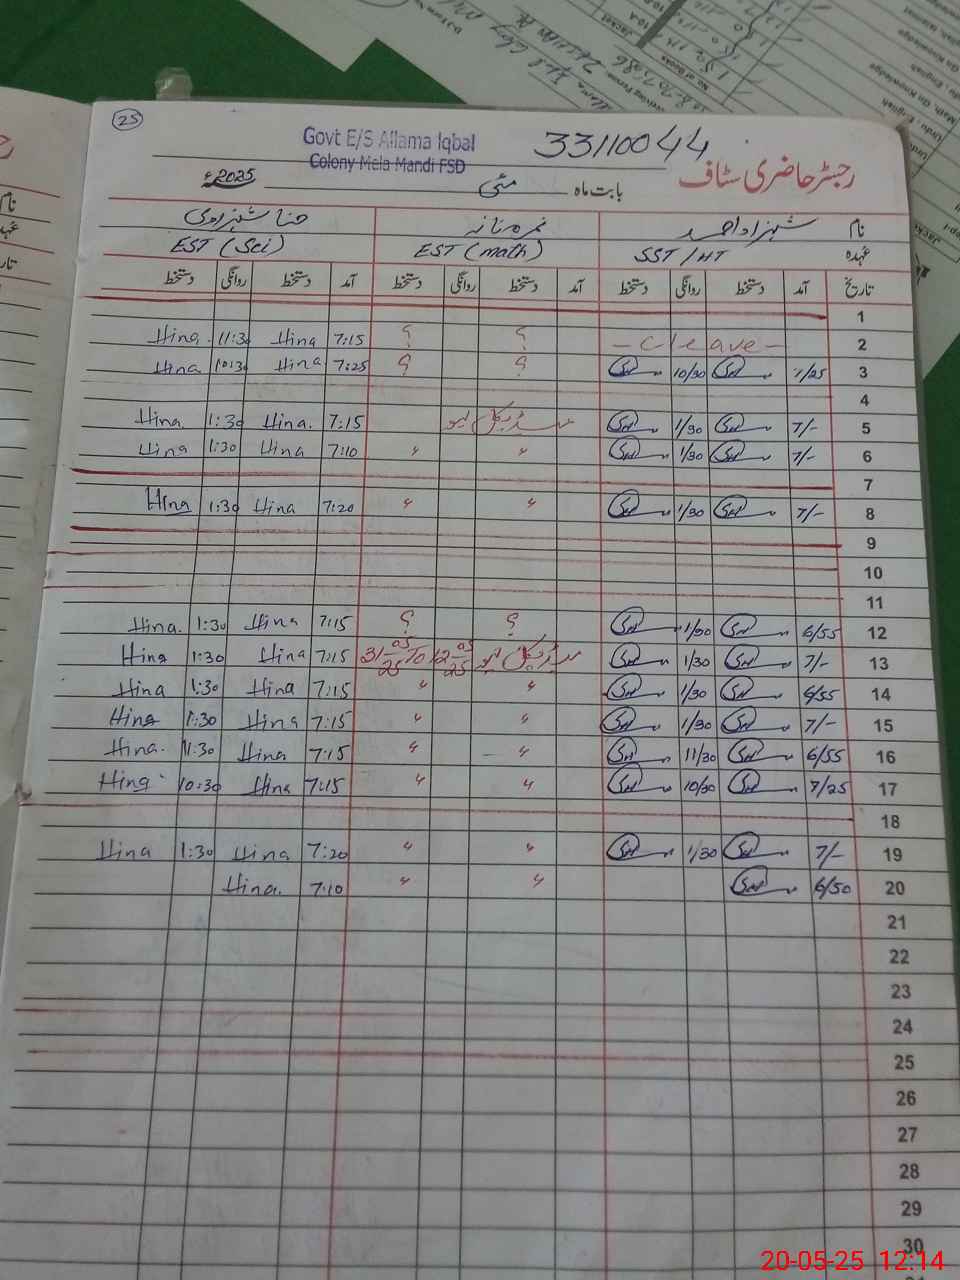 25
Govt E/S Allama Iqbal
Colony Mela Mandi FSD
33110044
رجسٹر حاضری سٹاف
بابت ماہ مئی 2025ء
نام شہزاد احمد نمرہ حنا شہزادی
عہدہ SST/HT EST (math) EST (Sci)
تاریخ آمد دستخط روانگی دستخط آمد دستخط روانگی دستخط آمد دستخط روانگی دستخط
1
2 - C leave - ؟ ؟ 7:15 Hina 11:30 Hina.
3 7/25 10/30 ؟ ؟ 7:25 Hina 10:30 Hina
4
5 7/- 1/30 میڈیکل لیو 7:15 Hina. 1:30 Hina.
6 7/- 1/30 〃 〃 7:10 Hina 1:30 Hina
7
8 7/- 1/30 〃 〃 7:20 Hina 1:30 Hina
9
10
11
12 6/55 1/30 ؟ ؟ 7:15 Hina 1:30 Hina.
13 7/- 1/30 میڈیکل لیو 12-05-25 To 31-05-25 7:15 Hina 1:30 Hina
14 6/55 1/30 〃 〃 7:15 Hina 1:30 Hina
15 7/- 1/30 〃 〃 7:15 Hina 1:30 Hina
16 6/55 11/30 〃 〃 7:15 Hina 11:30 Hina.
17 7/25 10/30 〃 〃 7:15 Hina 10:30 Hina
18
19 7/- 1/30 〃 〃 7:20 Hina 1:30 Hina
20 6/50 〃 〃 7:10 Hina.
21
22
23
24
25
26
27
28
29
30
20-05-25 12:14